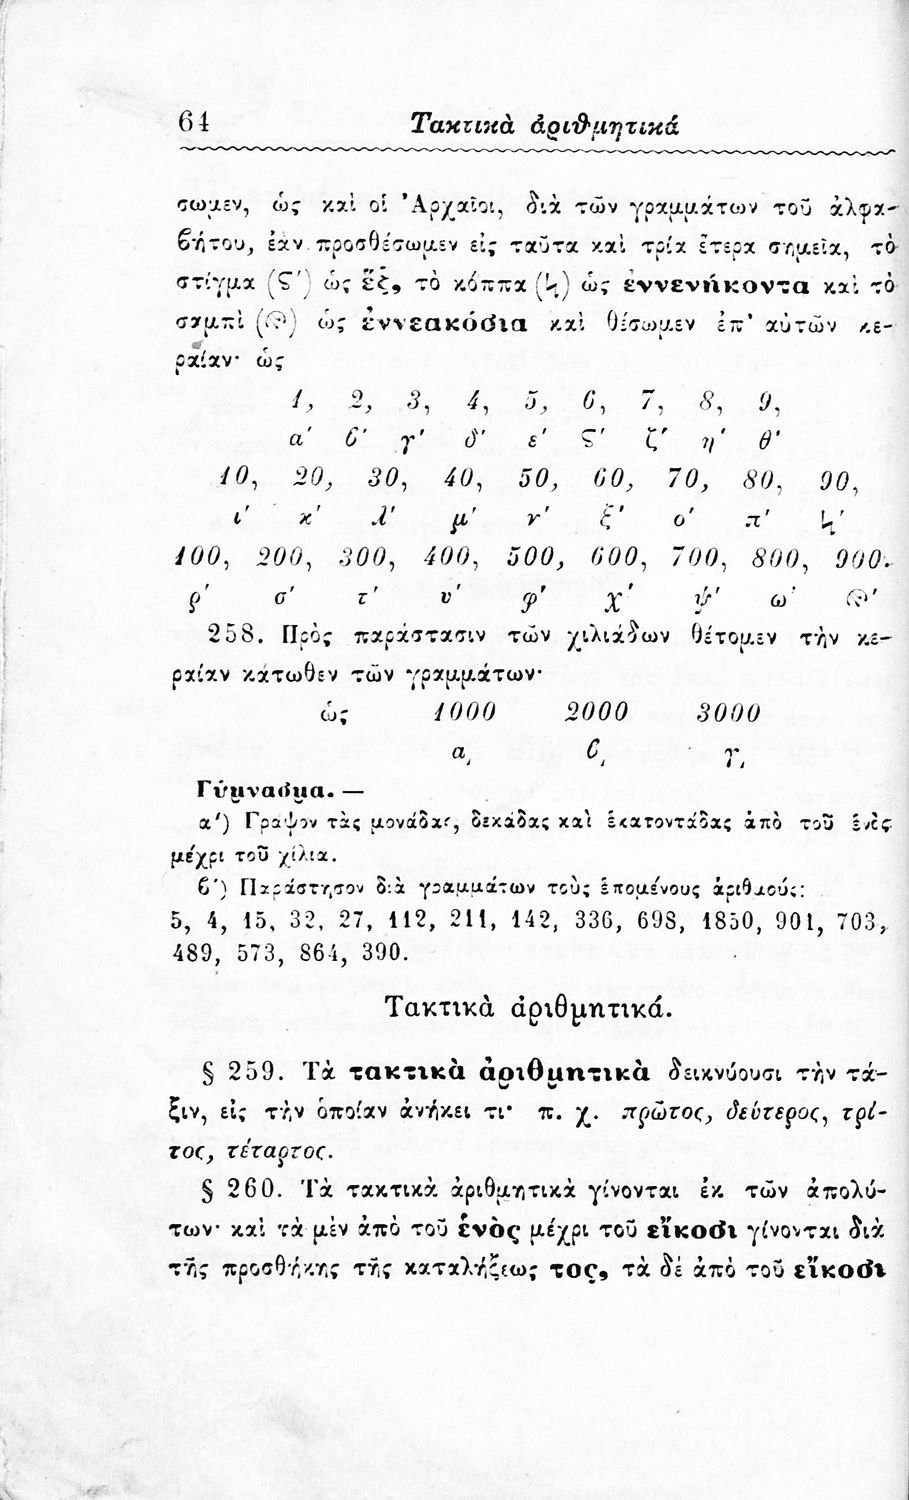 64 Τακτικὰ ἀριθμητικά
σωμεν, ὡς καὶ οἱ Ἀρχαῖοι, διὰ τῶν γραμμάτων τοῦ ἀλφα-
ϐήτου, ἐὰν προσθέσωμεν εἰς ταῦτα καὶ τρία ἕτερα σημεῖα, τὸ
στίγμα (Ϛ′) ὡς ἕξ, τὸ κόππα (ϟ) ὡς ἐννενήκοντα καὶ τὸ
σαμπὶ (ϡ) ὡς ἐννεακόσια καὶ θέσωμεν ἐπ' αὐτῶν κε-
ραίαν· ὡς
1, 2, 3, 4, 5, 6, 7, 8, 9,
α′ ϐ′ γ′ δ′ ε′ Ϛ′ ζ′ η′ θ′
10, 20, 30, 40, 50, 60, 70, 80, 90,
ι′ κ′ λ′ μ′ ν′ ξ′ ο′ π′ ϟ′
100, 200, 300, 400, 500, 600, 700, 800, 900.
ρ′ σ′ τ′ υ′ φ′ χ′ ψ′ ω′ ϡ′
258. Πρὸς παράστασιν τῶν χιλιάδων θέτομεν τὴν κε-
ραίαν κάτωθεν τῶν γραμμάτων·
ὡς 1000 2000 3000
α͵ ϐ͵ γ͵
Γύμνασμα. —
α′) Γράψον τὰς μονάδας, δεκάδας καὶ ἑκατοντάδας ἀπὸ τοῦ ἑνὸς
μέχρι τοῦ χίλια.
ϐ′) Παράστησον διὰ γραμμάτων τοὺς ἑπομένους ἀριθμούς:
5, 4, 15, 32, 27, 112, 211, 142, 336, 698, 1850, 901, 703,
489, 573, 864, 390.
Τακτικὰ ἀριθμητικά.
§ 259. Τὰ τακτικὰ ἀριθμητικὰ δεικνύουσι τὴν τά-
ξιν, εἰς τὴν ὁποίαν ἀνήκει τι· π. χ. πρῶτος, δεύτερος, τρί-
τος, τέταρτος.
§ 260. Τὰ τακτικὰ ἀριθμητικὰ γίνονται ἐκ τῶν ἀπολύ-
των· καὶ τὰ μὲν ἀπὸ τοῦ ἑνὸς μέχρι τοῦ εἴκοσι γίνονται διὰ
τῆς προσθήκης τῆς καταλήξεως τος, τὰ δὲ ἀπὸ τοῦ εἴκοσι